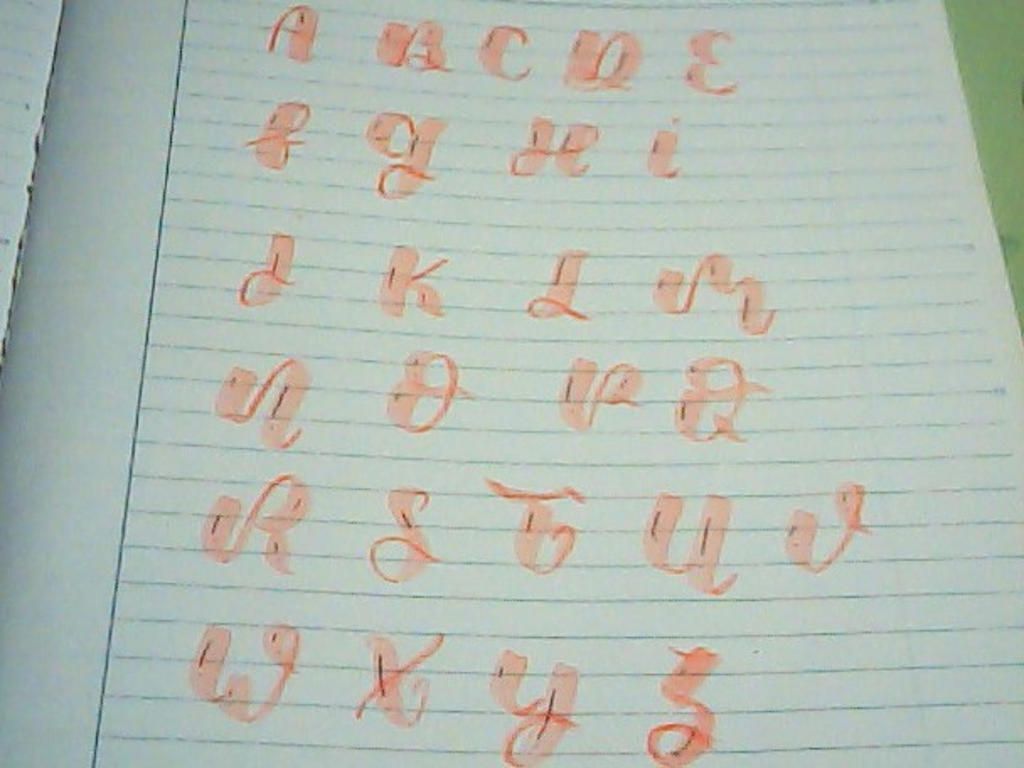 A B C D E
F G H I
J K L M
N O P Q
R S T U V
W X Y Z